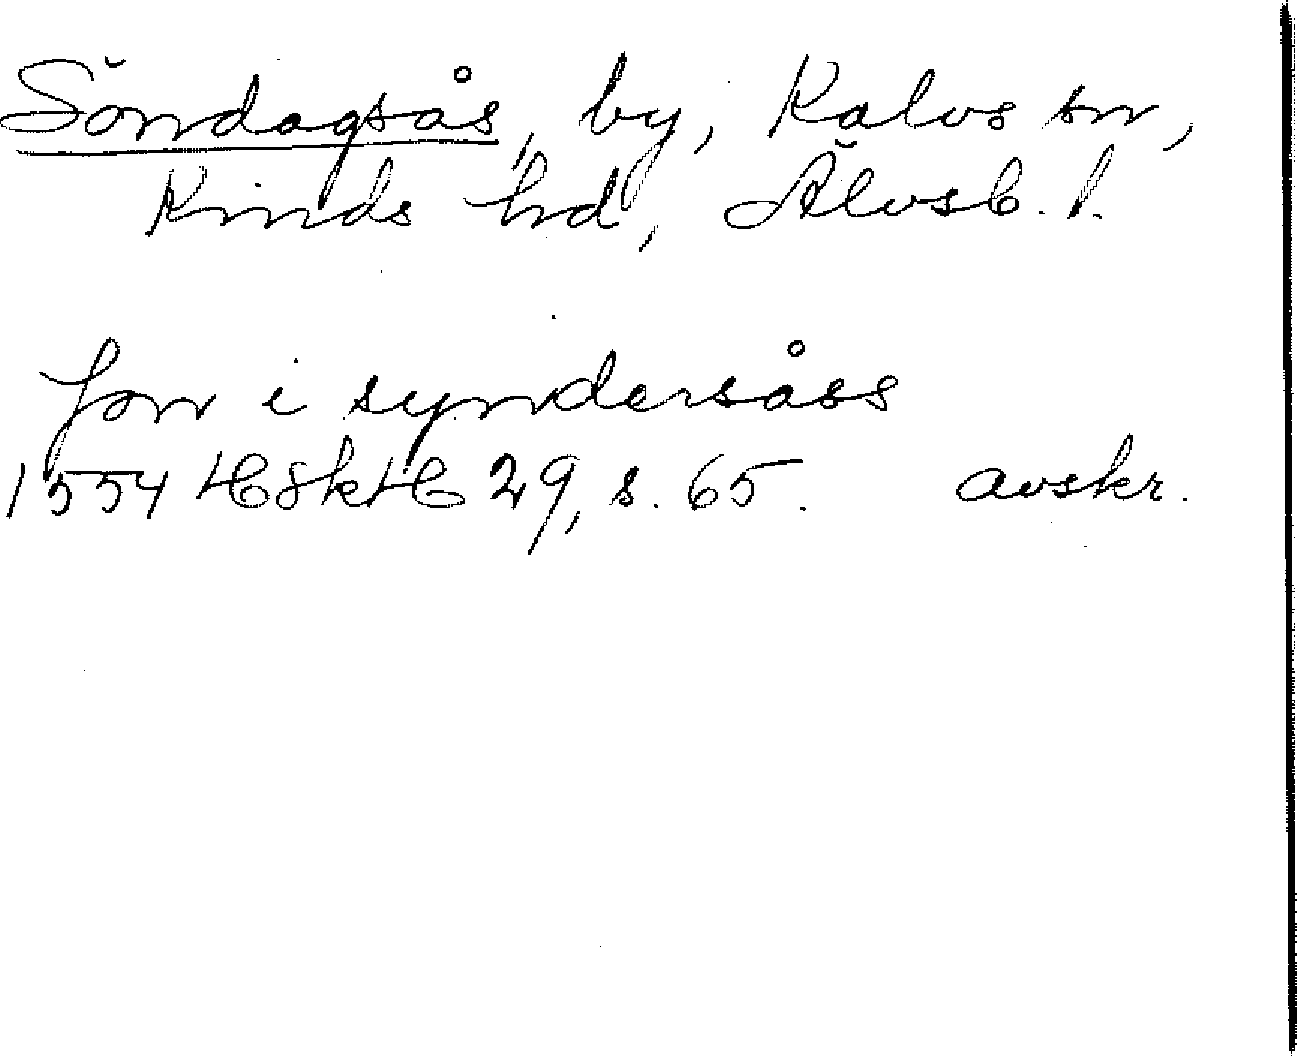 Söndagsås, by, Kalvs sn,
Kinds hd, Älvsb. l.
Jon i syndersåss
1554 HH 29, s. 65. avskr.